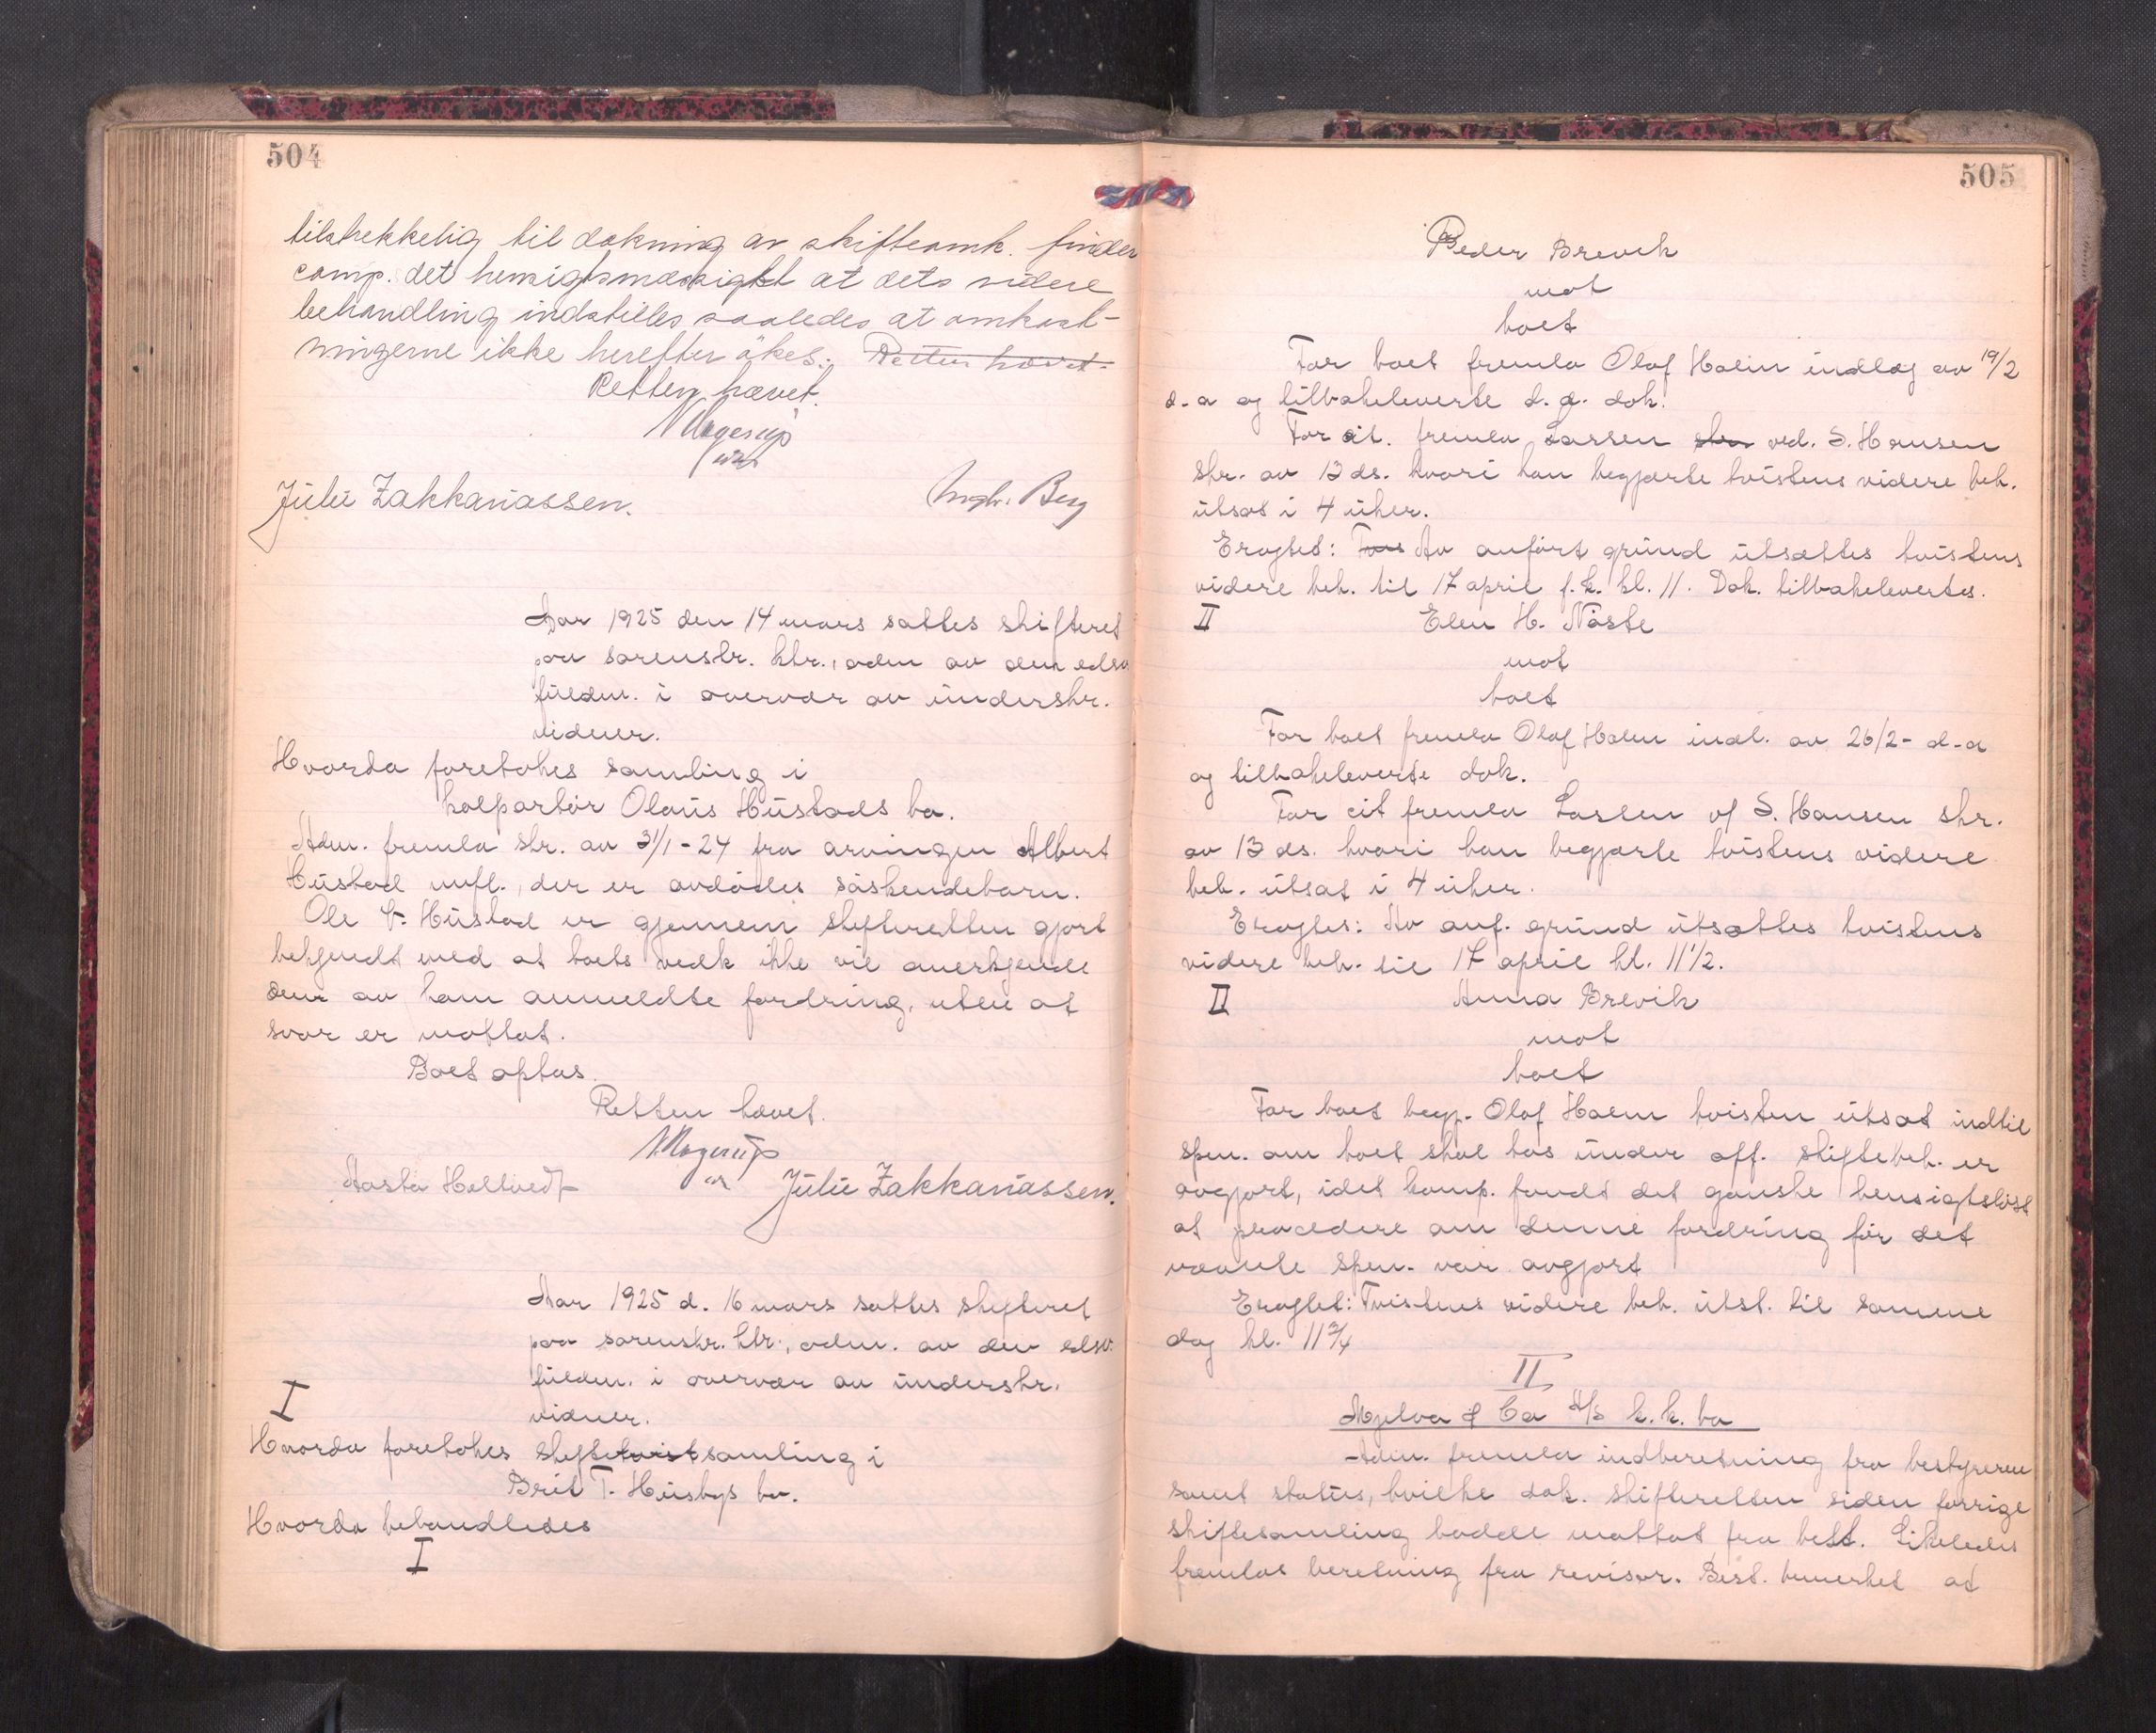 504
tilstrekkelig til dækning av skifteomk. finder
comp. det hensigtsmæssigst at dets videre
behandling indstilles saaledes at omkost-
ningerne ikke herefter økes. Retten hævet.
Retten hævet.
Julie Zakkariassen.
Ingbr. Berg
Aar 1925 den 14 mars sattes skifteret
paa sorenskr. ktr., adm. av den edsv.
fuldm. i overvær av underskr.
vidner.
Hvorda foretokes samling i
kolportør Olaus Hustads bo.
Adm. fremla skr. av 31/1-24 fra arvingen Albert
Hustad, der er avdødes søskendebarn.
Ole Hustad er gjennem skifteretten gjort
bekjendt med at boets vedk ikke vil anerkjende
den av ham anmeldte fordring, uten at
svar er mottat.
Boet optas.
Retten hævet.
Aasta Hellvedt
Julie Zakkariassen.
Aar 1925 d. 16 mars sattes skifteret
paa sorenskr. ktr., adm. av den edsv.
fuldm. i overvær av underskr.
I
vidner.
Hvorda foretokes skiftetvistsamling i
Brit T. Husbys bo.
Hvorda behandledes
I
505
Peder Brevik
mot
boet
For boet fremla Olaf Holm indlæg av 19/2
d.a og tilbakeleverte d.a. dok.
For cit. fremla Lassen skr ved. S. Hansen
skr. av 13 ds. hvori han begjærte tvistens videre beh.
utsat i 4 uker.
Eragtet: Av anført grund utsættes tvistens
videre beh. til 17 april f.k. kl. 11. Dok. tilbakelevertes.
II
Elen H. Nåste
mot
boet
For boet fremla Olaf Holm indl. av 26/2- d-a
og tilbakeleverte dok.
For cit fremla Lassen v/ S. Hansen skr.
av 13 ds. hvori han begjærte tvistens videre
beh. utsat i 4 uker.
Eragtes: Av anf. grund utsættes tvistens
videre beh. til 17 april kl. 11 1/2.
II
Anna Brevik
mot
boet
For boet begj. Olaf Holm tvisten utsat indtil
spm. om boet skal tas under off. skiftebeh. er
avgjort, idet komp. fandt det ganske hensigtsløst
at procedere om denne fordring før det
nævnte spm. var avgjort
Eragtet: Tvistens videre beh. utst. til samme
dag kl. 11 3/4
II
Mjelva & Co A/S k.k. bo
Adm. fremla indberetning fra bestyreren
samt status, hvilke dok. skifteretten siden forrige
skiftesamling hadde mottat fra best. Likeledes
fremlas beretning fra revisor. Best. bemerket at